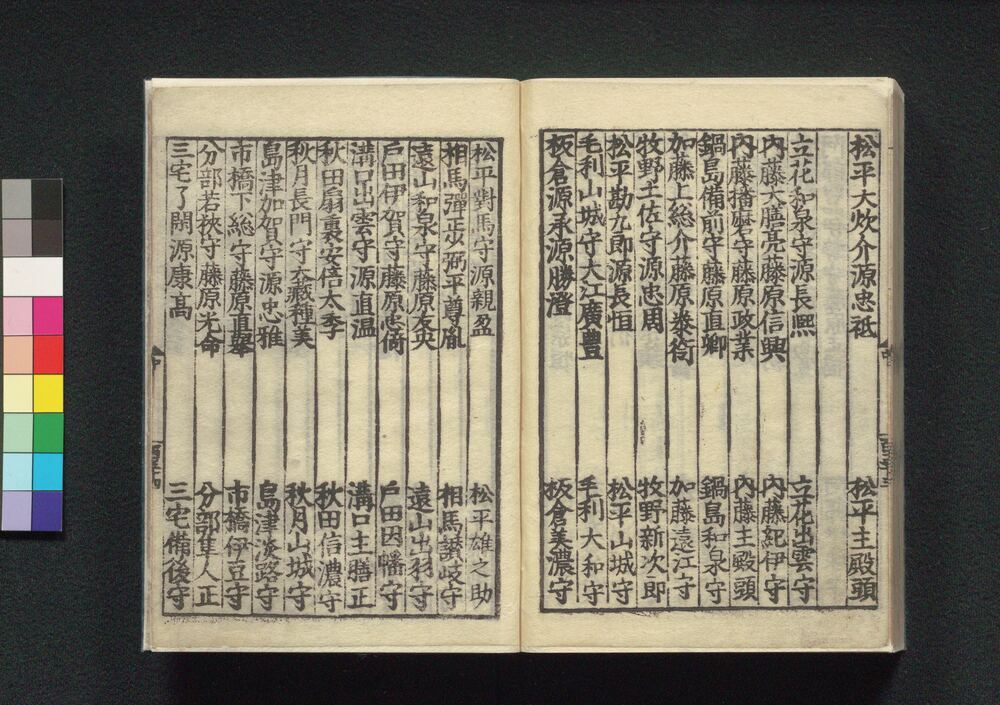 松平大炊介源忠祗 松平主殿頭
立花和泉守源長煕 立花出雲守
内藤大膳亮藤原信興 内藤紀伊守
内藤播磨守藤原政業 内藤主殿頭
鍋島備前守藤原直郷 鍋島和泉守
加藤上総介藤原泰衑 加藤遠江守
牧野土佐守源忠周 牧野新次郎
松平勘九郎源長恒 松平山城守
毛利山城守大江廣豊 毛利大和守
板倉源承源勝澄 板倉美濃守
松平對馬守源親盈 松平雄之助
相馬彈正弼平尊胤 相馬讃岐守
遠山和泉守藤原友央 遠山出羽守
戸田伊賀守藤原忠 戸田因幡守
溝口出雲守源直温 溝口主膳正
秋田扇裏安倍太季 秋田信濃守
秋月長門守大藏種美 秋月山城守
島津加賀守源忠雅 島津淡路守
市橋下総守藤原直擧 市橋伊豆守
分部若狹守藤原光命 分部隼人正
三宅了閑源康高 三宅備後守